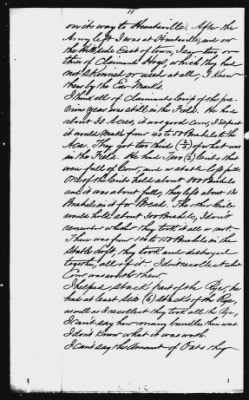 11
on its way to Huntsville. After the
Army left I was at Huntsville, and on
the Hillside East of town, I saw two or
three of Claimants Hogs, which they had
not skinned or used at all. I knew
them by the Ear Marks.
I think all of Claimants Crop of the pre-
vious year was still in the Field. He had
about 30 Acres, it was good corn, I expect
it would make four as to 50 Bushels to the
Acre. They got two thirds (⅔) of what was
in the Field. He had two (2) Cribs that
were full of Corn, and a stable loft full.
One of the Cribs held about 500 Bushels
and it was about full, they left about 12
Bushels in it for Bread. The other Crib
would hold about 300 Bushels, I don't
remember whether they took it all or not.
There was from 100 to 150 Bushels in the
Stable loft, they took and destroyed
together, all of it. I don't recollect what
Corn was worth then.
I helped stack part of the Rye, he
had at least six (6) stacks of the Rye,
as well as I recollect they took all the Rye,
I can't say how many bundles there was
I don't know what it was worth.
I can't say the amount of Oats they